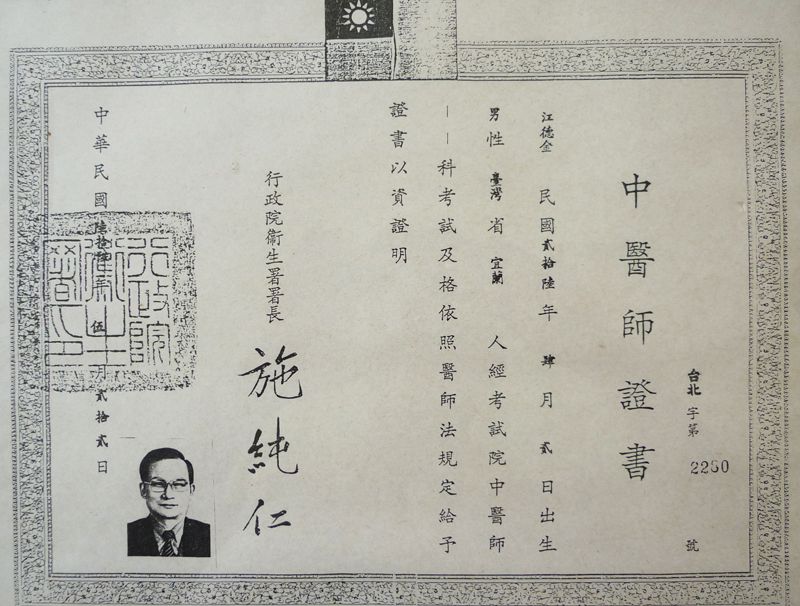 中醫師證書
台北字第2260號
江德金 民國貳拾陸年肆月貳日出生
男性 臺灣省宜蘭 人經考試院中醫師
——科考試及格依照醫師法規定給予
證書以資證明
行政院衛生署署長
施純仁
中華民國 年伍月貳拾貳日